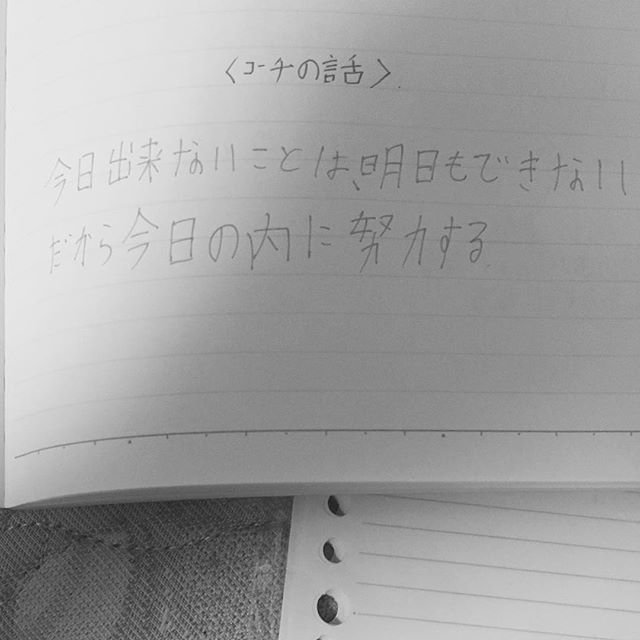 〈コーチの話〉
今日出来ないことは、明日もできない
だから今日の内に努力する